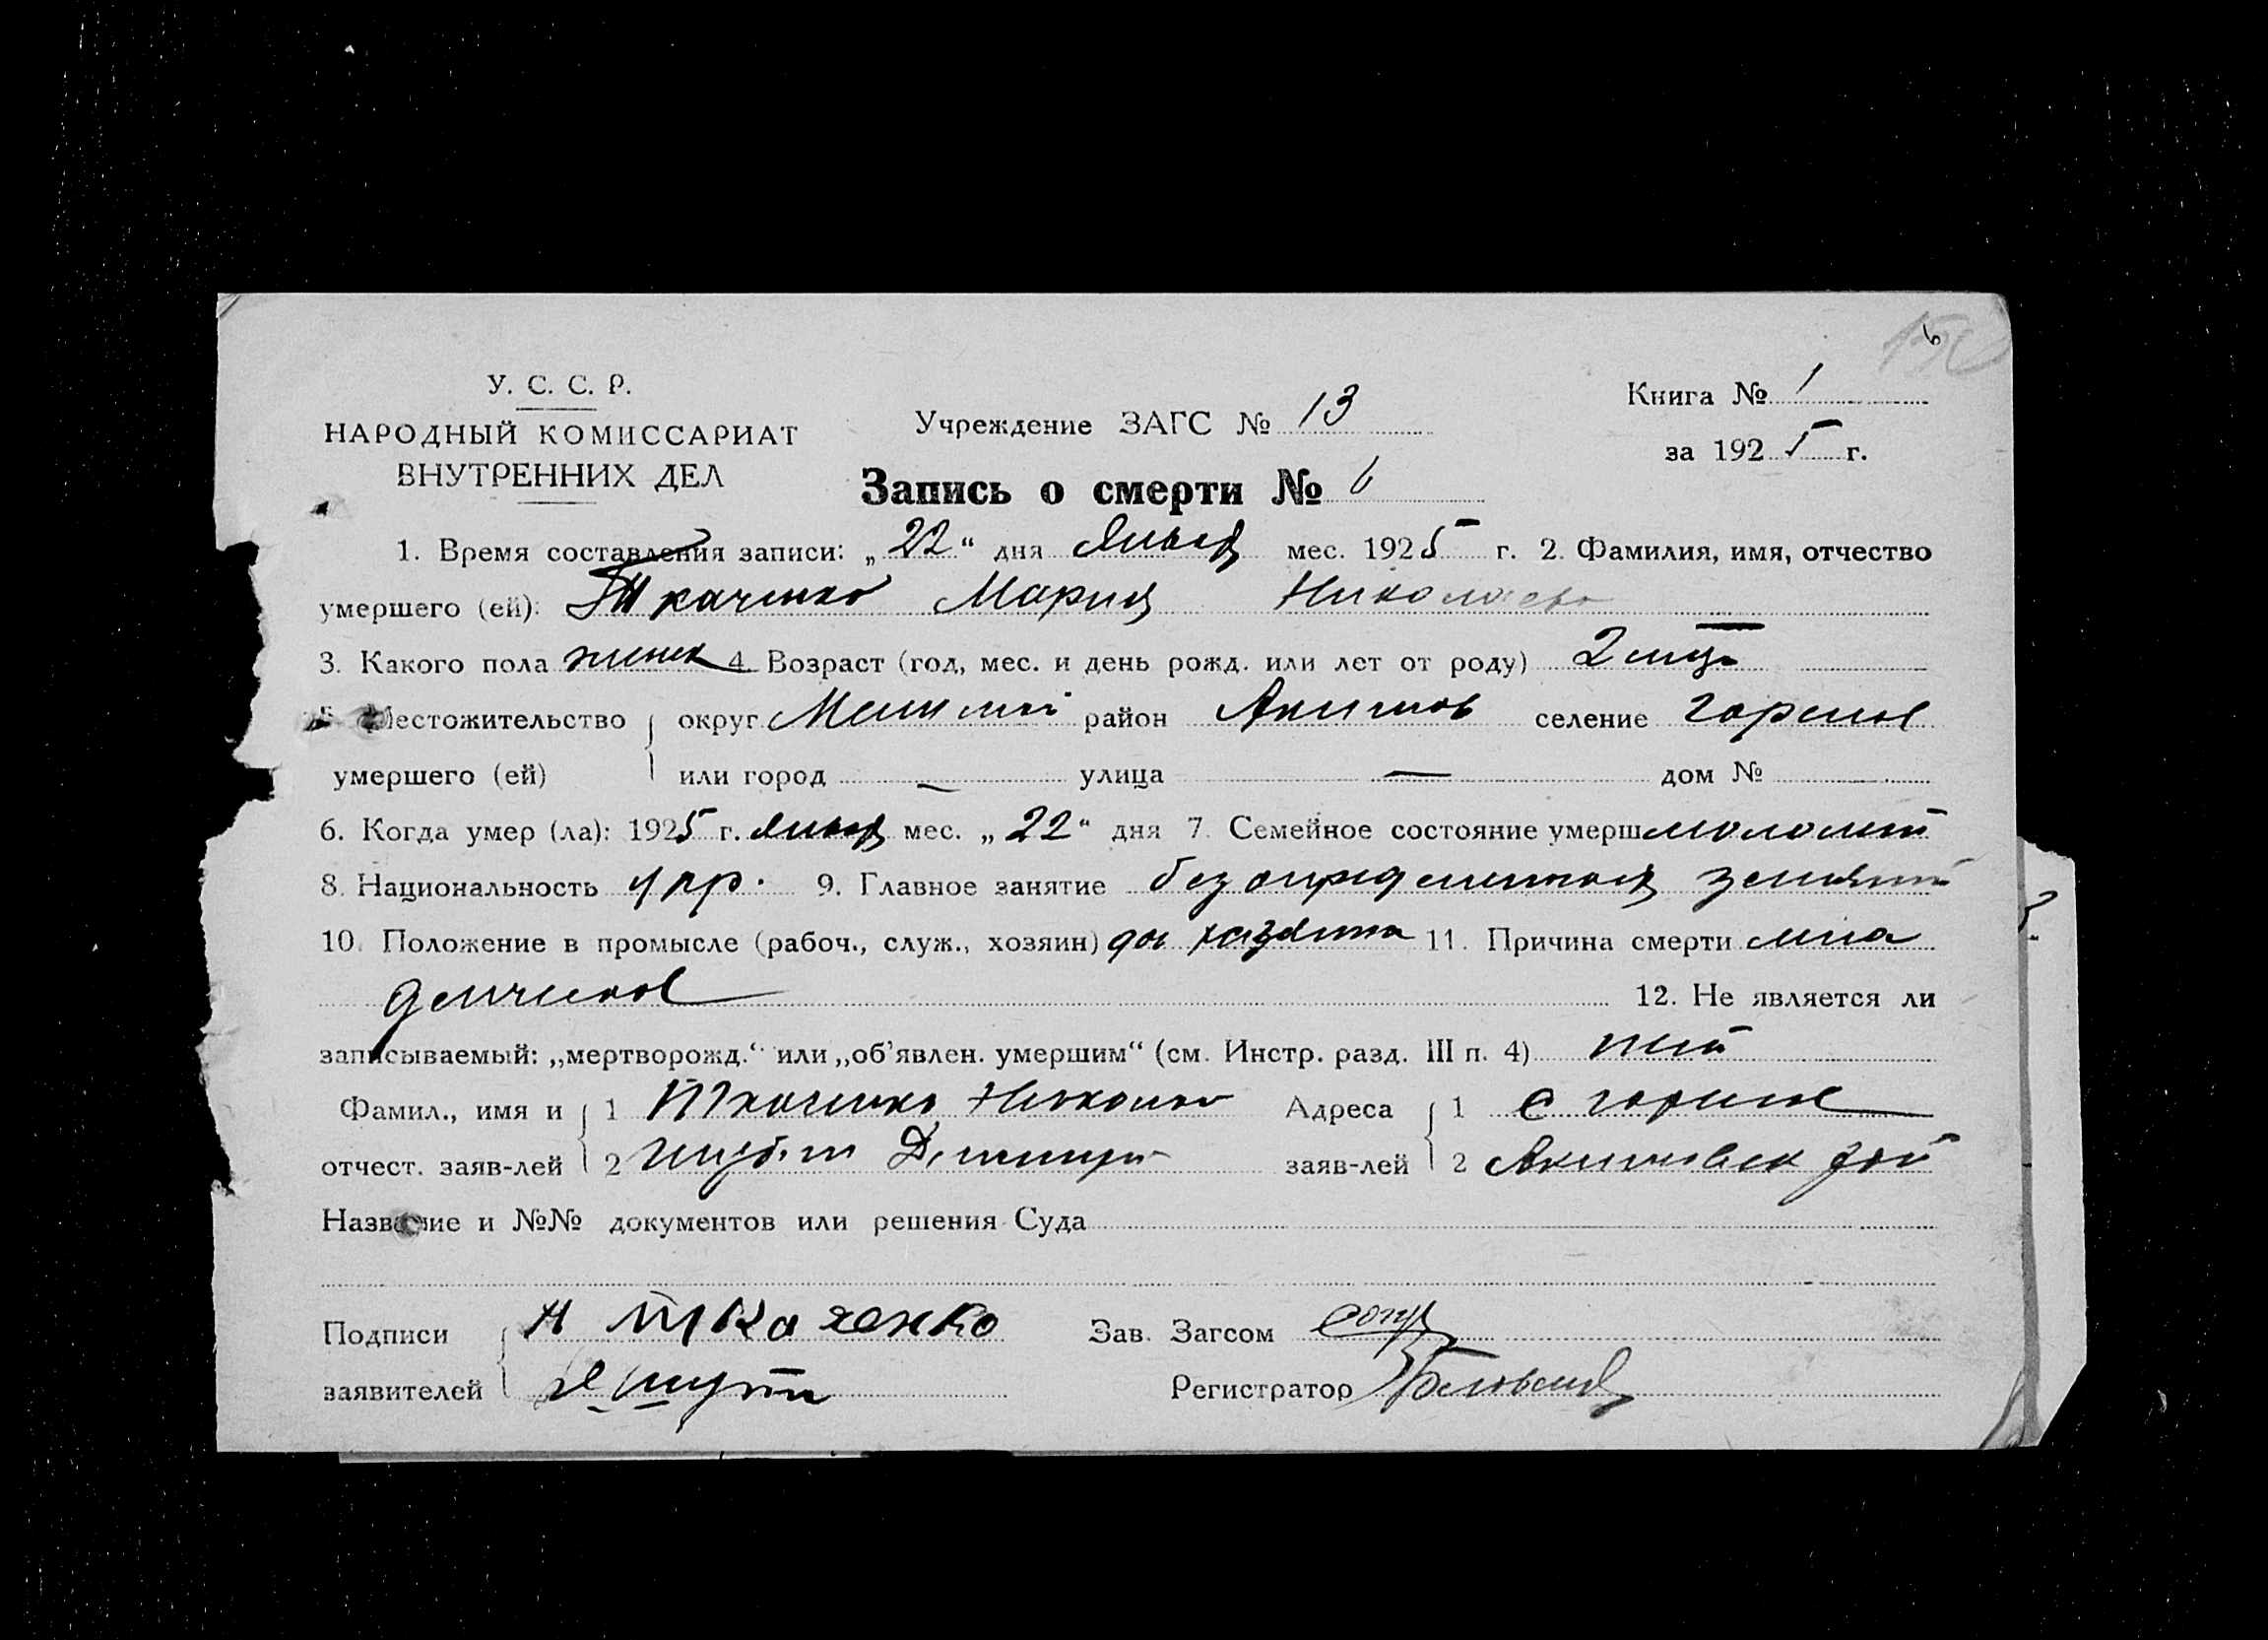 6
У. С. С. Р.
НАРОДНЫЙ КОМИССАРИАТ
ВНУТРЕННИХ ДЕЛ
Учреждение ЗАГС № 13
Книга № 1
за 1925 г.
Запись о смерти № 6
1. Время составления записи: „22“ дня Января мес. 1925 г. 2. Фамилия, имя, отчество
умершего (ей): Ткаченко Мария Николаевн
3. Какого пола женск 4. Возраст (год, мес. и день рожд. или лет от роду) 2 месц
5. Местожительство округ район Акимов селение Горелое
умершего (ей) или город — улица — дом №
6. Когда умер (ла): 1925 г. Января мес. „22“ дня 7. Семейное состояние умерш малолет
8. Национальность укр. 9. Главное занятие без определенных занятий
10. Положение в промысле (рабоч., служ., хозяин) хозяина 11. Причина смерти мла
денческое 12. Не является ли
записываемый: „мертворожд.“ или „об’явлен. умершим“ (см. Инстр. разд. III п. 4) нет
Фамил., имя и 1 Ткаченко Николай Адреса 1 с Горелое
отчест. заяв-лей 2 Дмитри заяв-лей 2 Акимовск рай
Название и №№ документов или решения Суда
Подписи Н Ткаченко Зав. Загсом
заявителей Регистратор